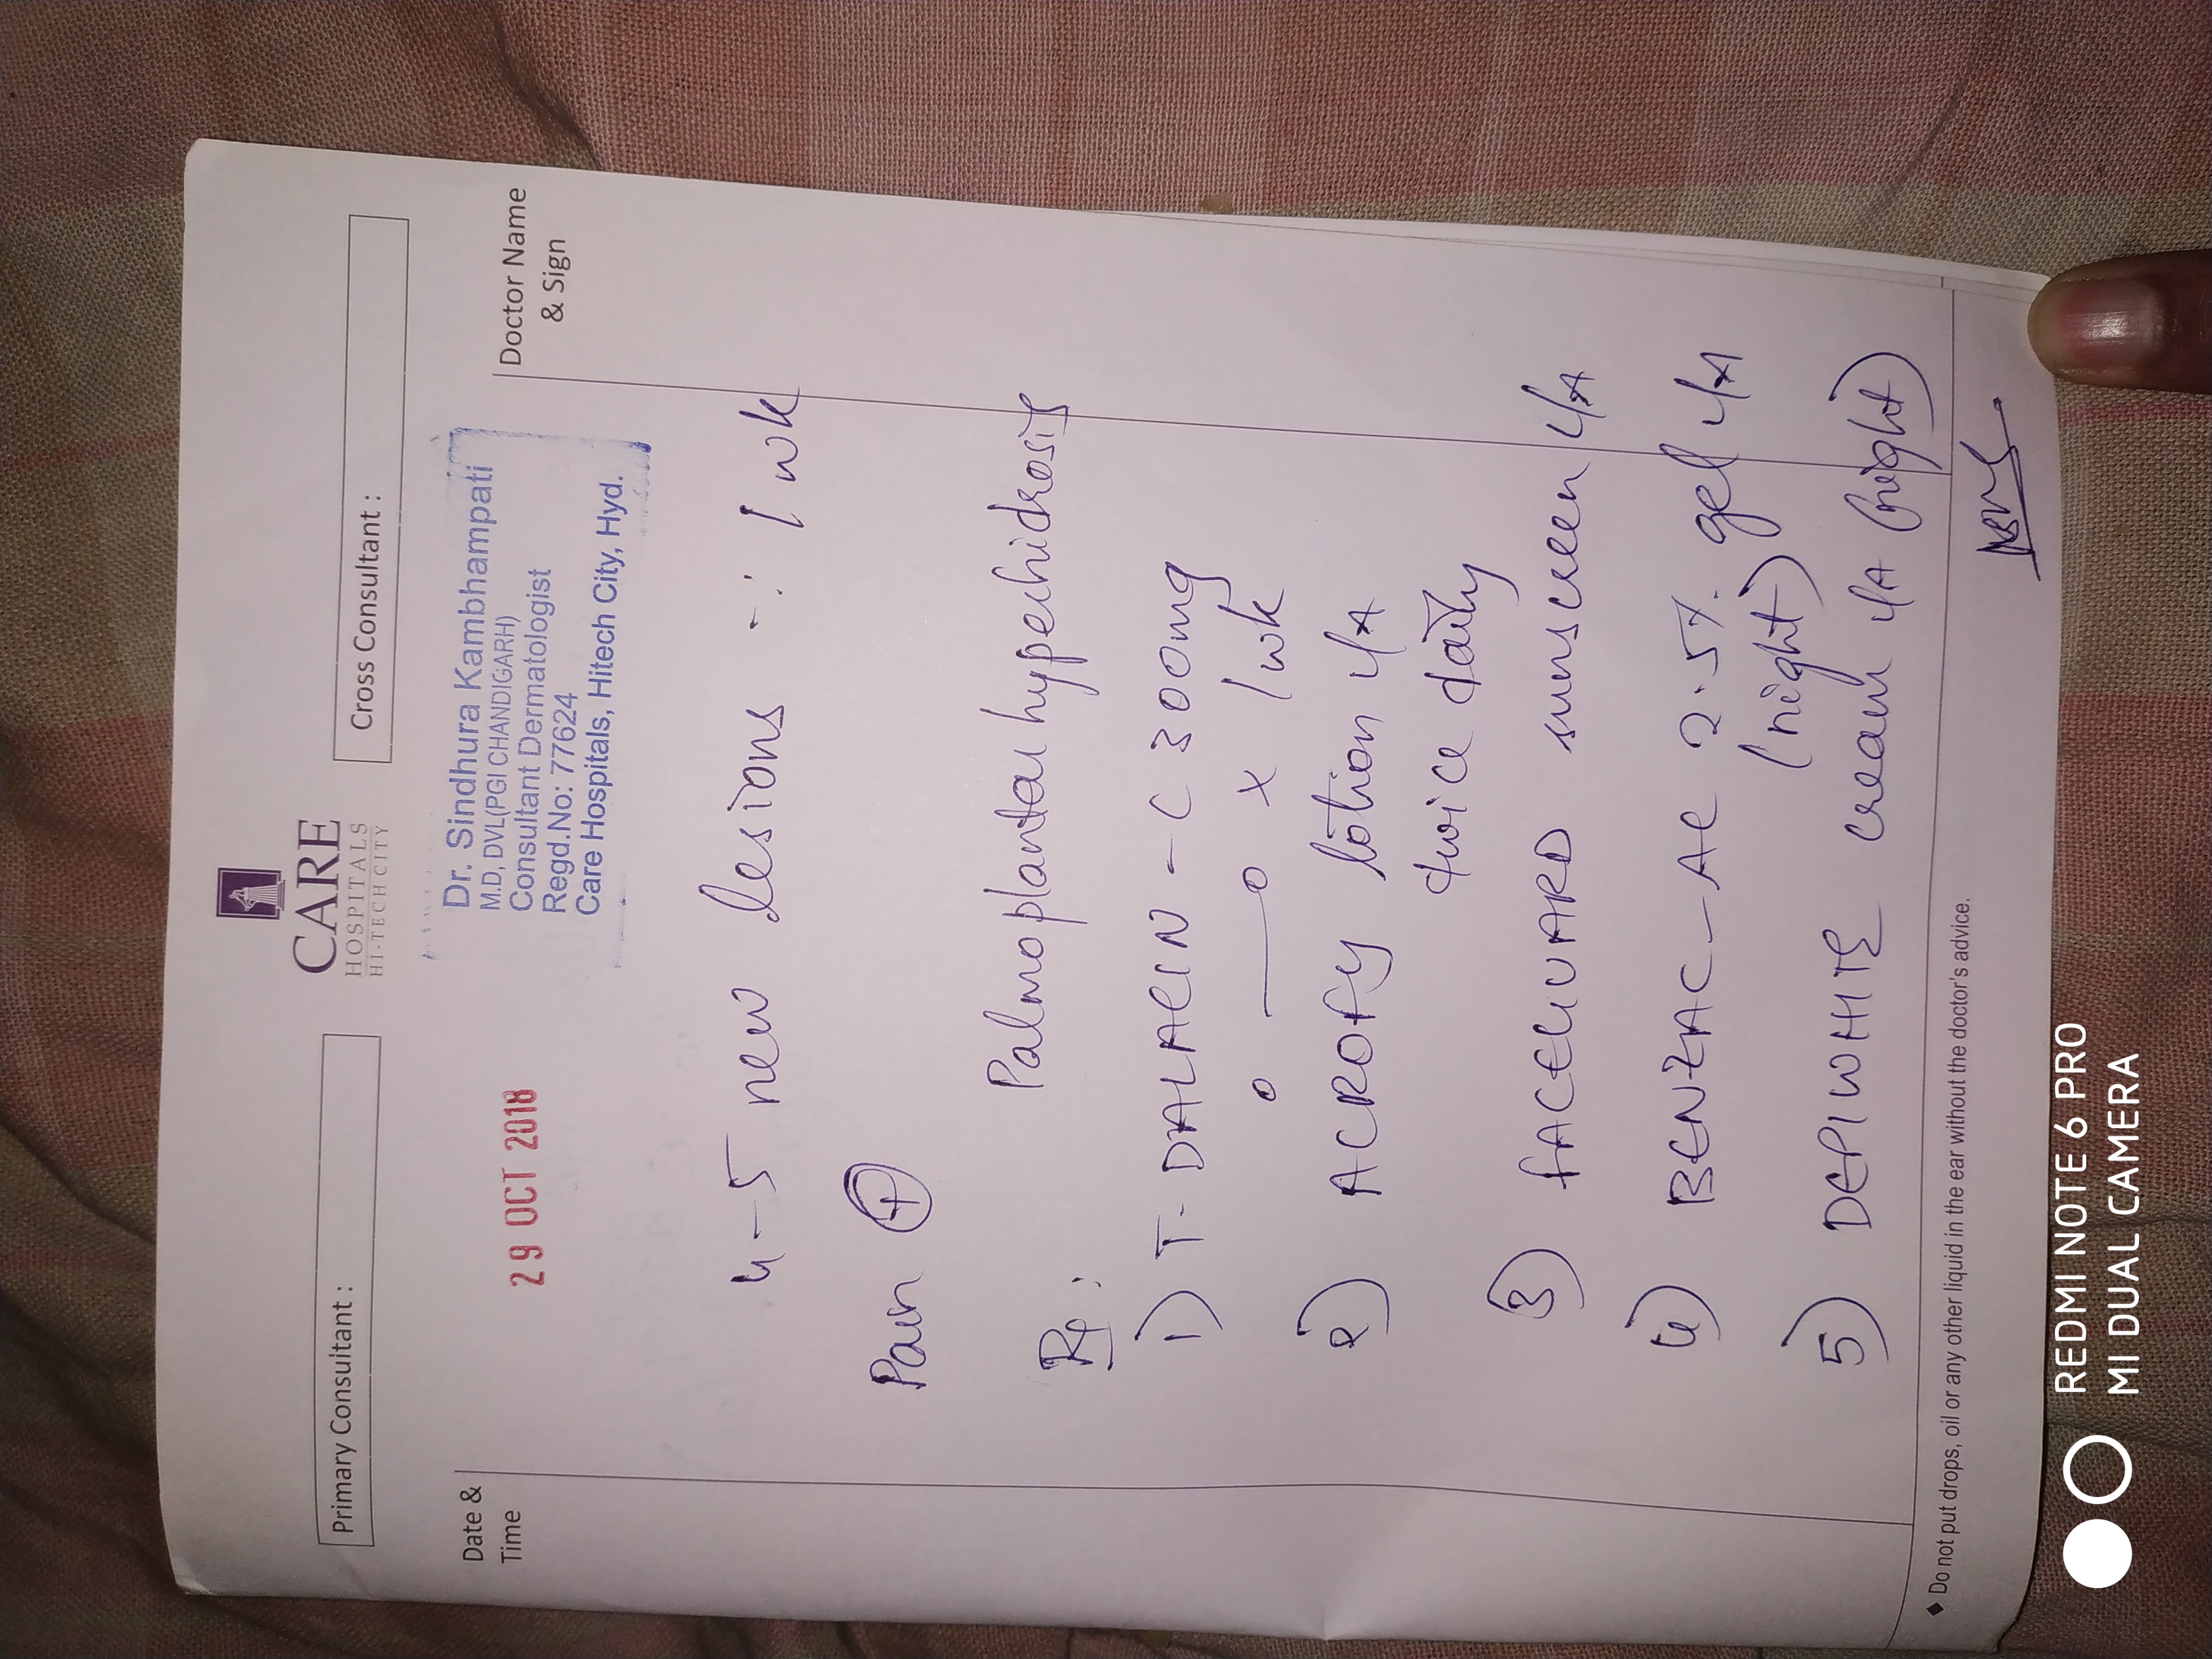 CARE
HOSPITALS
HI-TECH CITY
Primary Consultant :
Cross Consultant :
Date &
Time
29 OCT 2018
Dr. Sindhura Kambhampati
M.D, DVL(PGI CHANDIGARH)
Consultant Dermatologist
Regd.No: 77624
Care Hospitals, Hitech City, Hyd.
Doctor Name
& Sign
4-5 new lesions -: 1 wk
Pain +
Palmoplantar hyperhidrosis
Rx :
1) T- DALACIN - C 300mg
o — o x 1 wk
2) ACROFY lotion L/A
twice daily
3) FACEGUARD sunscreen L/A
4) BENZAC-AC 2.5% gel L/A
(night)
5) DEPIWHITE cream L/A (night)
◆ Do not put drops, oil or any other liquid in the ear without the doctor's advice.
REDMI NOTE 6 PRO
MI DUAL CAMERA